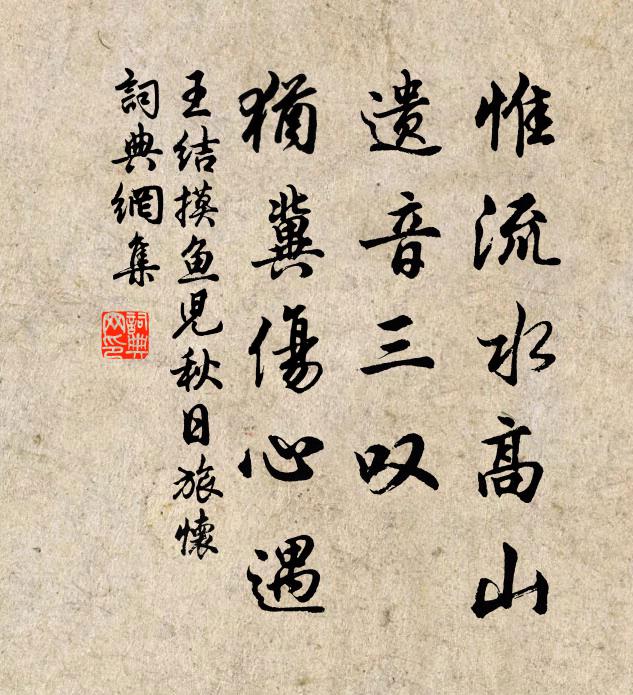 惟流水高山
遗音三叹
猶冀傷心遇
王结摸鱼児秋日旅懷
詞典網集
詞典网印